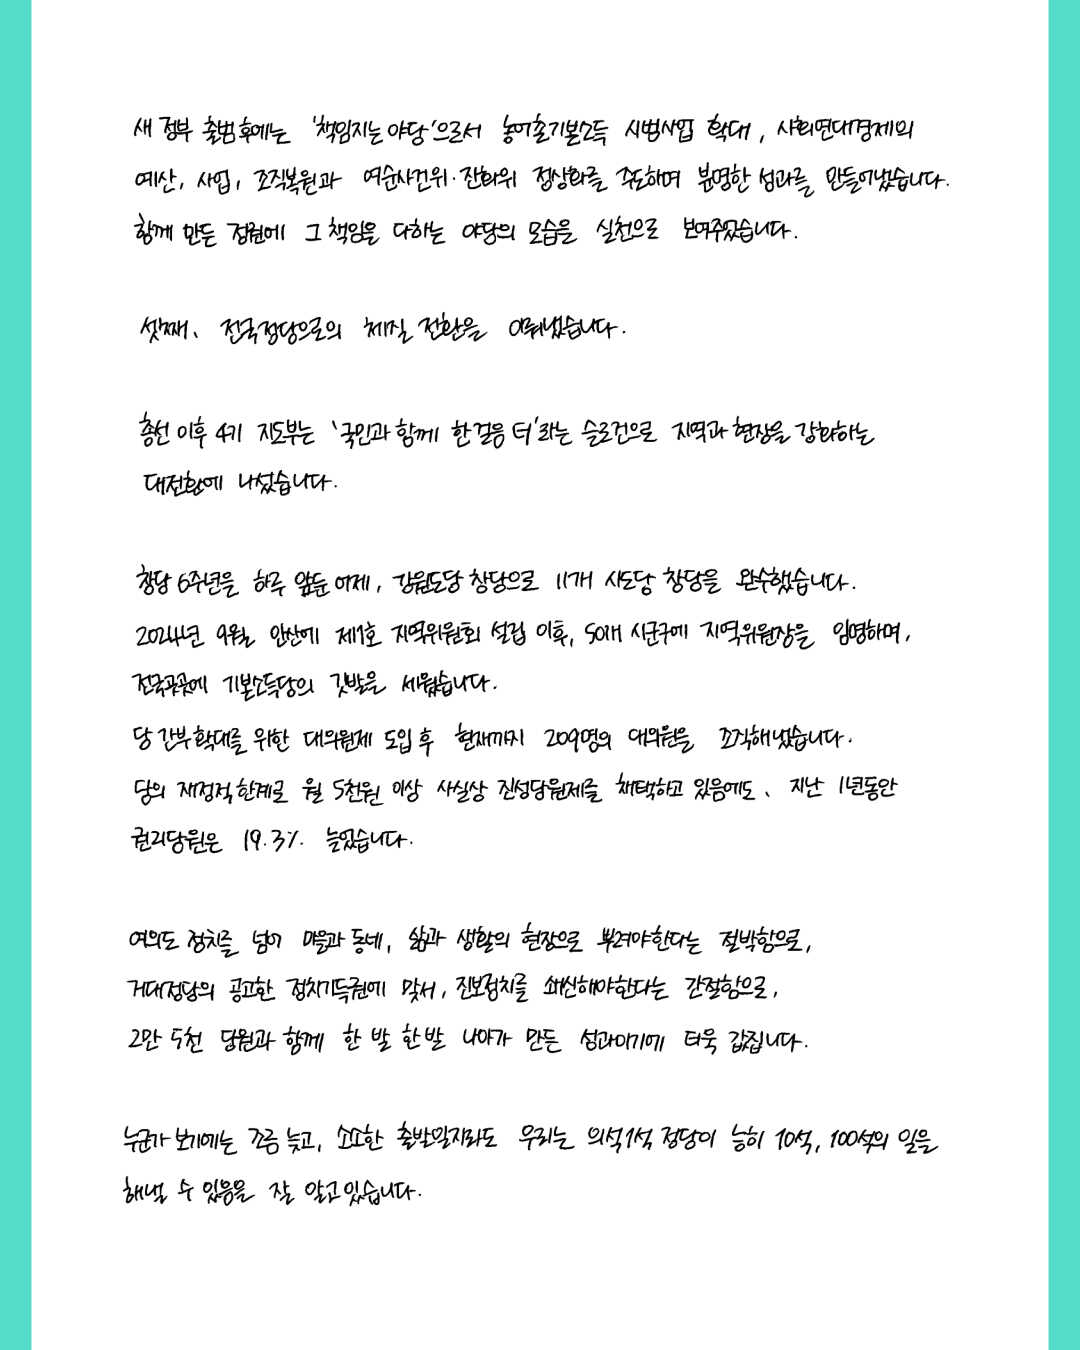 새 정부 출범 후에는 '책임지는 야당'으로서 농어촌기본소득 시범사업 확대, 사회연대경제의
예산, 사업, 조직복원과 여순사건위·진화위 정상화를 주도하며 분명한 성과를 만들어냈습니다.
함께 만든 정권에 그 책임을 다하는 야당의 모습을 실천으로 보여주었습니다.
셋째, 전국정당으로의 체질 전환을 이뤄냈습니다.
총선 이후 4기 지도부는 '국민과 함께 한걸음 더'라는 슬로건으로 지역과 현장을 강화하는
대전환에 나섰습니다.
창당 6주년을 하루 앞둔 어제, 강원도당 창당으로 11개 시도당 창당을 완수했습니다.
2024년 9월 안산에 제1호 지역위원회 설립 이후, 50개 시군구에 지역위원장을 임명하며,
전국곳곳에 기본소득당의 깃발을 세웠습니다.
당 간부 확대를 위한 대의원제 도입 후 현재까지 209명의 대의원을 조직해냈습니다.
당의 재정적 한계로 월 5천원 이상 사실상 진성당원제를 채택하고 있음에도, 지난 1년동안
권리당원은 19.3% 늘었습니다.
여의도 정치를 넘어 마을과 동네, 삶과 생활의 현장으로 뿌려야한다는 절박함으로,
거대정당의 공고한 정치기득권에 맞서, 진보정치를 쇄신해야한다는 간절함으로,
2만 5천 당원과 함께 한 발 한 발 나아가 만든 성과이기에 더욱 값집니다.
누군가 보기에는 조금 늦고, 소소한 출발일지라도 우리는 의석1석 정당이 능히 10석, 100석의 일을
해낼 수 있음을 잘 알고있습니다.